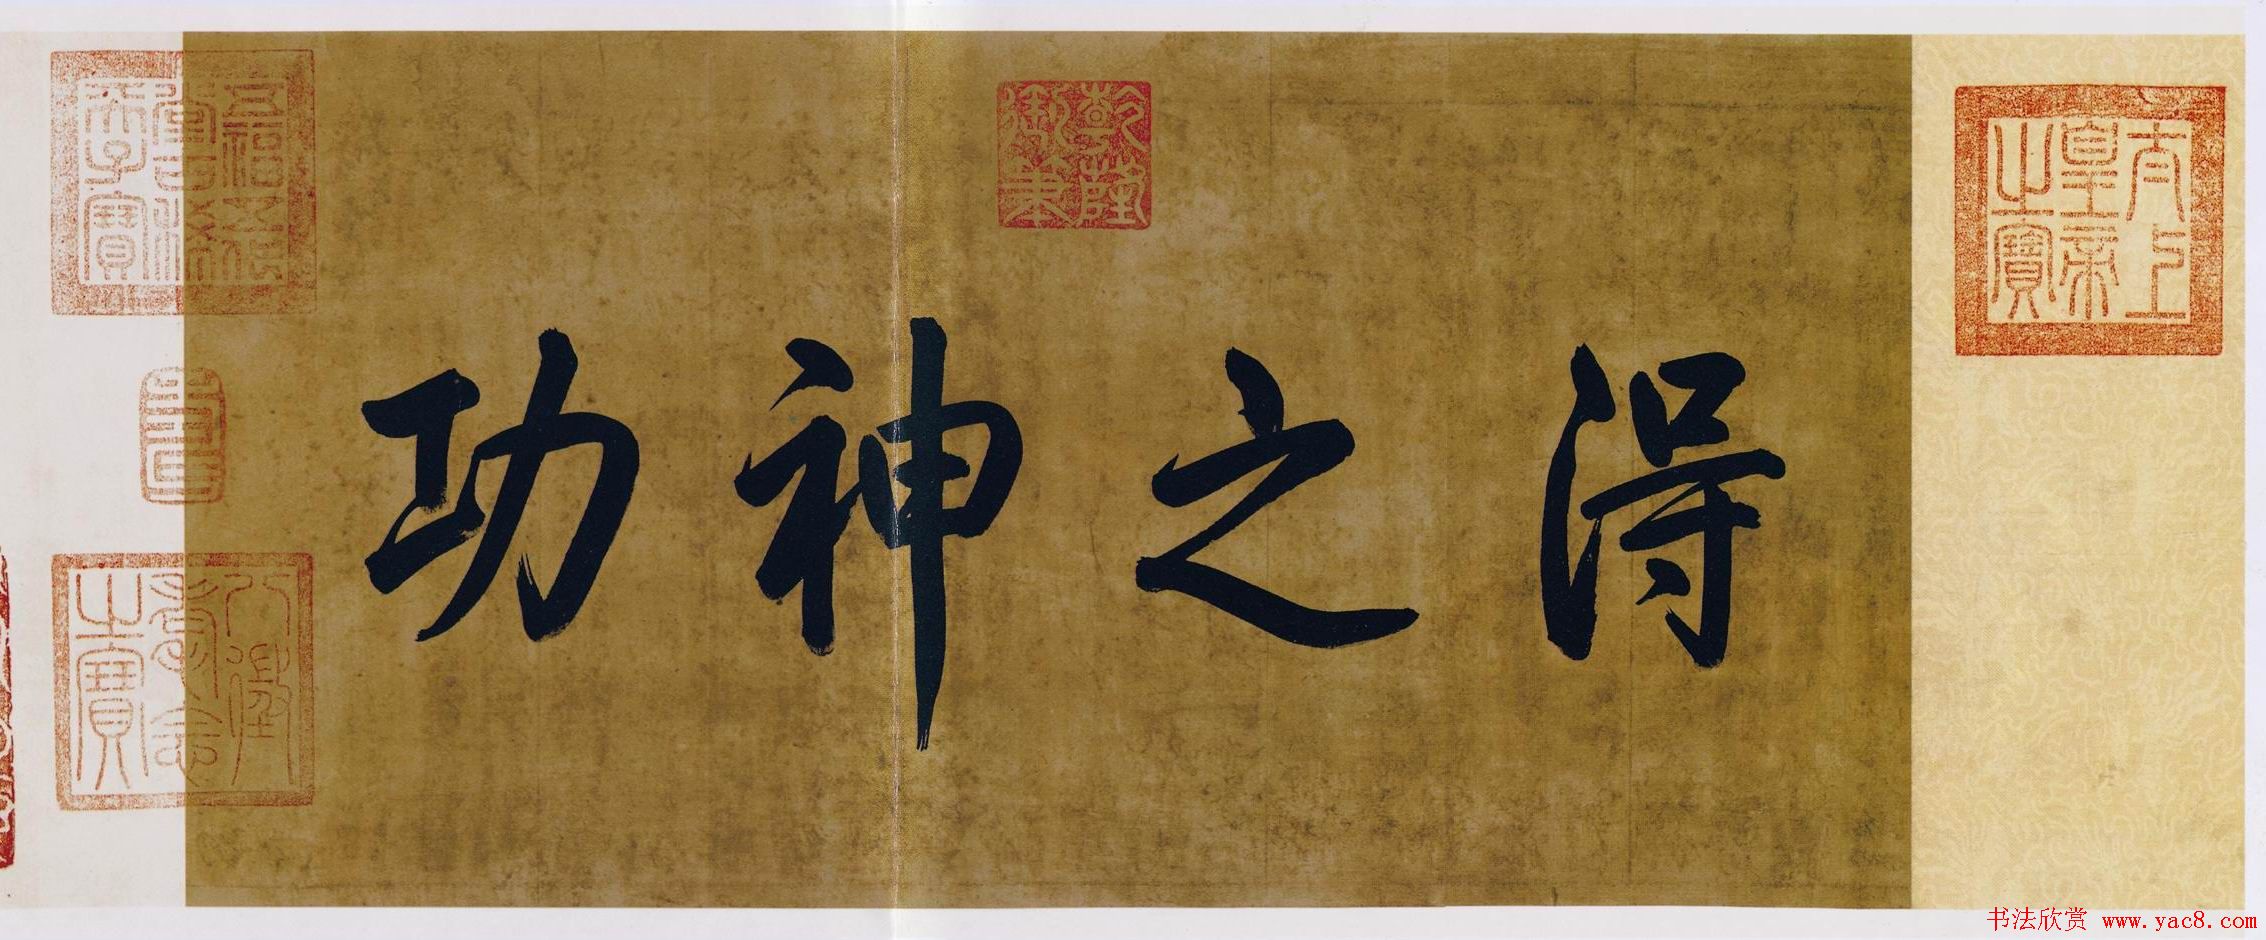 太上皇帝之寶
得之神功
乾隆御筆
五福五代堂古稀天子寶
八徵耄念之寶
书法欣赏 www.yac8.com